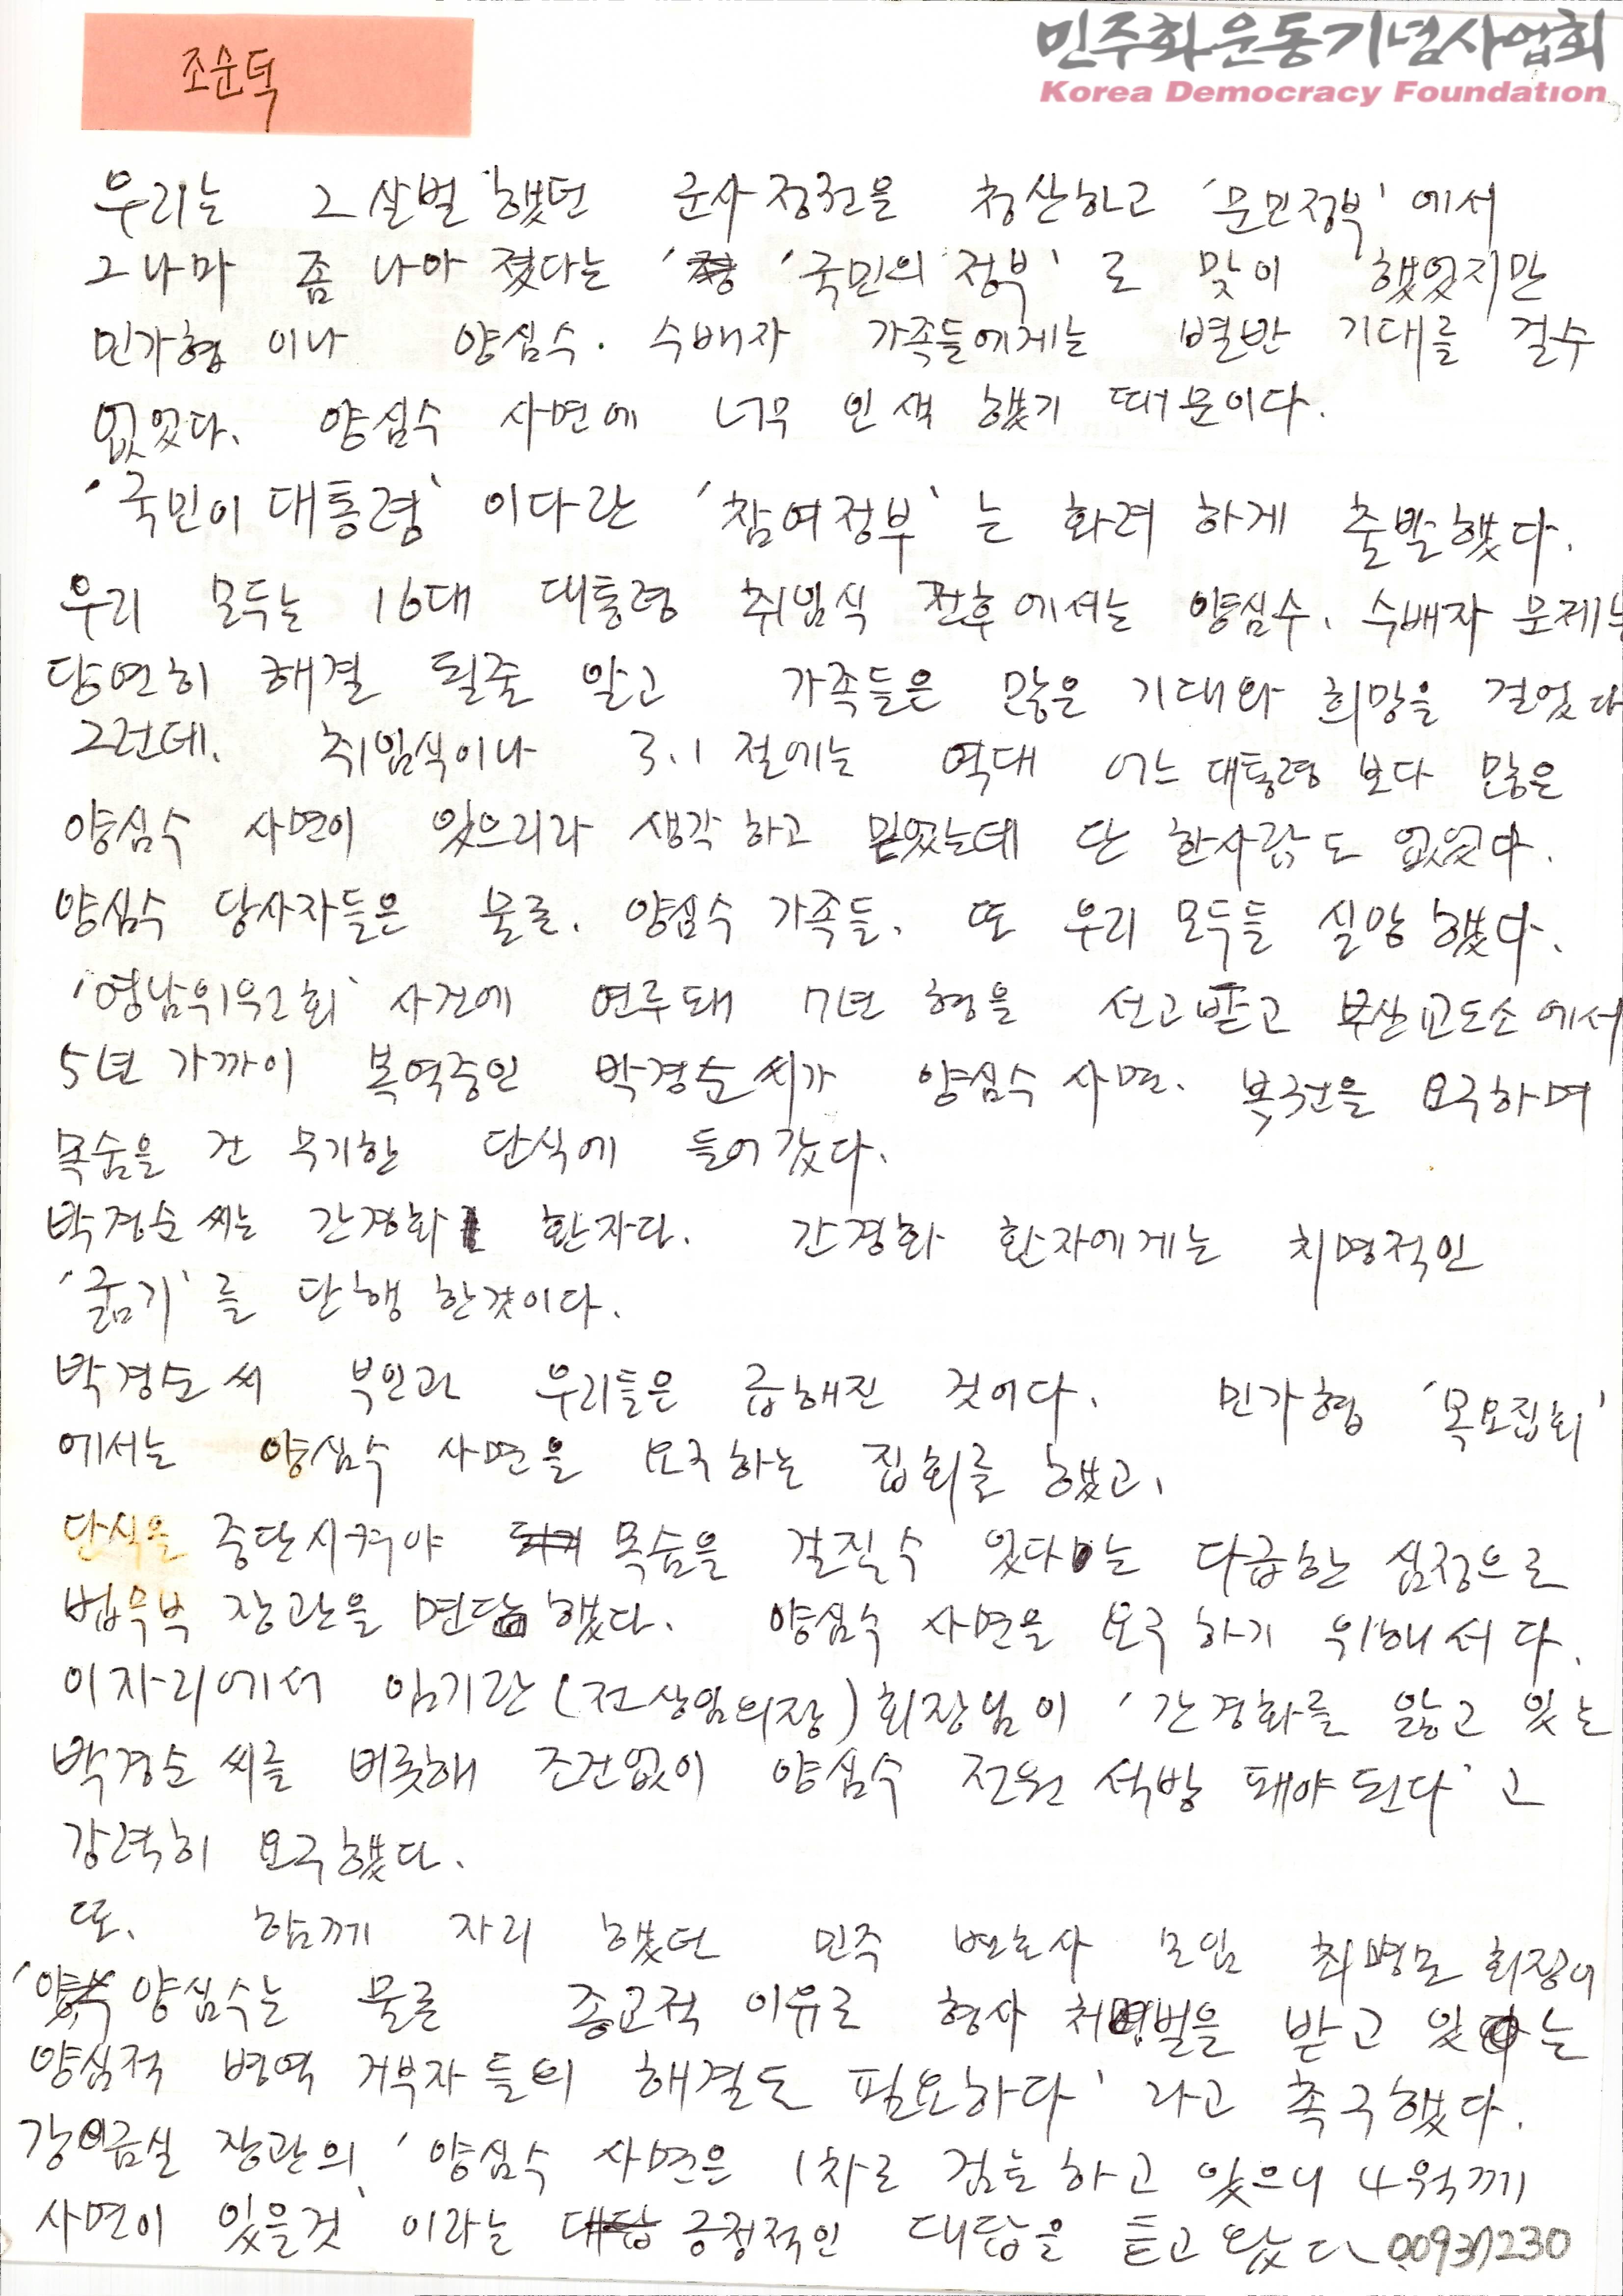 조순덕
민주화운동기념사업회
Korea Democracy Foundation
우리는 그 살벌했던 군사정권을 청산하고 '문민정부'에서
그나마 좀 나아 졌다는 '국민의 정부'로 맞이 했었지만
민가협 이나 양심수. 수배자 가족들에게는 별반 기대를 걸수
없었다. 양심수 사면에 너무 인색 했기 때문이다.
'국민이 대통령' 이다란 '참여정부'는 화려 하게 출발했다.
우리 모두는 16대 대통령 취임식 전후에서는 양심수. 수배자 문제는
당연히 해결 될줄 알고 가족들은 많은 기대와 희망을 걸었다
그런데. 취임식이나 3.1 절에는 역대 어느 대통령 보다 많은
양심수 사면이 있으리라 생각하고 믿었는데 단 한사람도 없었다.
양심수 당사자들은 물론. 양심수 가족들. 또 우리 모두들 실망했다.
'영남위원회' 사건에 연루돼 7년 형을 선고받고 부산교도소에서
5년 가까이 복역중인 박경순씨가 양심수 사면. 복권을 요구하며
목숨을 건 무기한 단식에 들어갔다.
박경순씨는 간경화 환자다. 간경화 환자에게는 치명적인
'굶기'를 단행 한것이다.
박경순씨 부인과 우리들은 급해진 것이다. 민가협 '목요집회'
에서는 양심수 사면을 요구하는 집회를 했고,
단식을 중단시켜야 목숨을 건질수 있다는 다급한 심정으로
법무부 장관을 면담했다. 양심수 사면을 요구 하기 위해서다.
이자리에서 임기란(전상임의장)회장님이 '간경화를 앓고 있는
박경순씨를 비롯해 조건없이 양심수 전원 석방 돼야된다'고
강력히 요구했다.
또. 함께 자리 했던 민주 변호사 모임 최병모 회장이
'양심수는 물론 종교적 이유로 형사 처벌을 받고 있는
양심적 병역 거부자들의 해결도 필요하다' 라고 촉구했다.
강금실 장관의 '양심수 사면은 1차로 검토하고 있으니 4월께
사면이 있을것' 이라는 긍정적인 대답을 듣고 왔다.
00937230